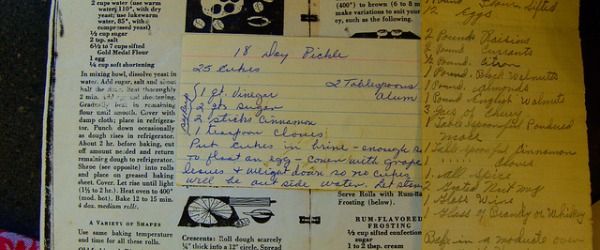 2 cups water (use warm
water, 110°, with dry
yeast; use lukewarm
water, 85°, with
compressed yeast)
½ cup sugar
2 tsp. salt
6½ to 7 cups sifted
Gold Medal Flour
1 egg
¼ cup soft shortening
In mixing bowl, dissolve yeast in
water. Add sugar, salt and about
half the flour. Beat thoroughly
2 min. Add egg and shortening.
Gradually beat in remaining
flour until smooth. Cover with
damp cloth; place in refrigera-
tor. Punch down occasionally
as dough rises in refrigerator.
About 2 hr. before baking, cut
off amount needed and return
remaining dough to refrigerator.
Shape (see opposite) into rolls
and place on greased baking
sheet. Cover. Let rise until light
(1½ to 2 hr.). Heat oven to 400°
(mod. hot). Bake 12 to 15 min.
4 doz. medium rolls.
A VARIETY OF SHAPES
Use same baking temperature
and time for all these rolls.
(400°) to brown (6 to 8 m
make variations to suit your
ey, such as the following.
18 Day Pickle
25 Cukes
2 Tablespoons
Alum
1 qt. Vinegar
2 qts Sugar
2 sticks Cinnamon
1 teaspoon Cloves
Syrup
Put Cukes in brine - enough so
to float an egg - cover with grape
leaves & weight down so no cukes
will be out side water. Let stand
Crescents: Roll dough scarcely
¼" thick into a 12" circle. Spread
Serve Rolls with Rum-fla
Frosting (below).
RUM-FLAVORED
FROSTING
½ cup sifted confection
sugar
1 to 2 tbsp. cream
1 Pound Flour Sifted
12 Eggs
2 Pounds Raisins
2 Pound Currants
½ Pound Citron
1 Pound Black Walnuts
1 Pound Almonds
1 Pound English Walnuts
3 Gill of Cherry
1 Tablespoonful Powdered
Mace
1 Tablespoonful Cinnamon
Cloves
1 All Spice
2 Grated Nutmeg
1 Glass Wine
1 Glass of Brandy or Whiskey
Bake in a moderate oven